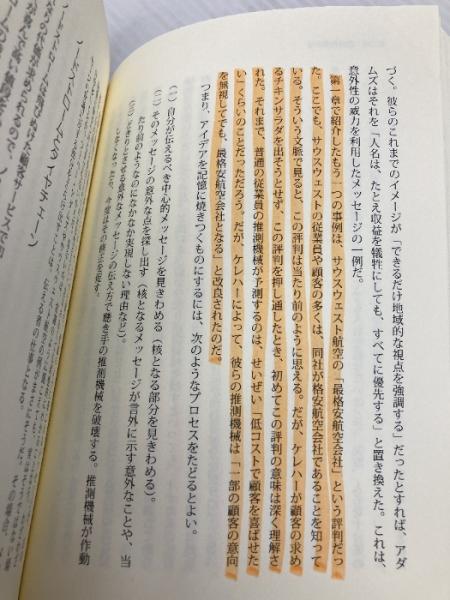 づく。彼らのこれまでのイメージが「できるだけ地域的な視点を強調する」だったとすれば、アダ
ムズはそれを「人名は、たとえ収益を犠牲にしても、すべてに優先する」と置き換えた。これは、
意外性の威力を利用したメッセージの一例だ。
第一章で紹介したもう一つの事例は、サウスウエスト航空の「最格安航空会社」という評判だっ
た。ここでも、サウスウエストの従業員や顧客の多くは、同社が格安航空会社であることを知って
いる。そういう文脈で見ると、この評判は当たり前のように思える。だが、ケレハーが顧客の求め
るチキンサラダを出そうとせず、この評判を押し通したとき、初めてこの評判の意味は深く理解さ
れた。それまで、普通の従業員の推測機械が予測するのは、せいぜい「低コストで顧客を喜ばせた
い」くらいのことだっただろう。だが、ケレハーによって、彼らの推測機械は「一部の顧客の意向
を無視してでも、最格安航空会社となる」と改良されたのだ。
つまり、アイデアを記憶に焼きつくものにするには、次のようなプロセスをたどるとよい。
(一) 自分が伝えるべき中心的メッセージを見きわめる(核となる部分を見きわめる)。
(二) そのメッセージの意外な点を探し出す(核となるメッセージが言外に示す意外なことや、当
たり前のようなのになかなか実現しない理由など)。
メッセージの伝え方で聴き手の推測機械を破壊する。推測機械が作動
今度はその修正を促す。